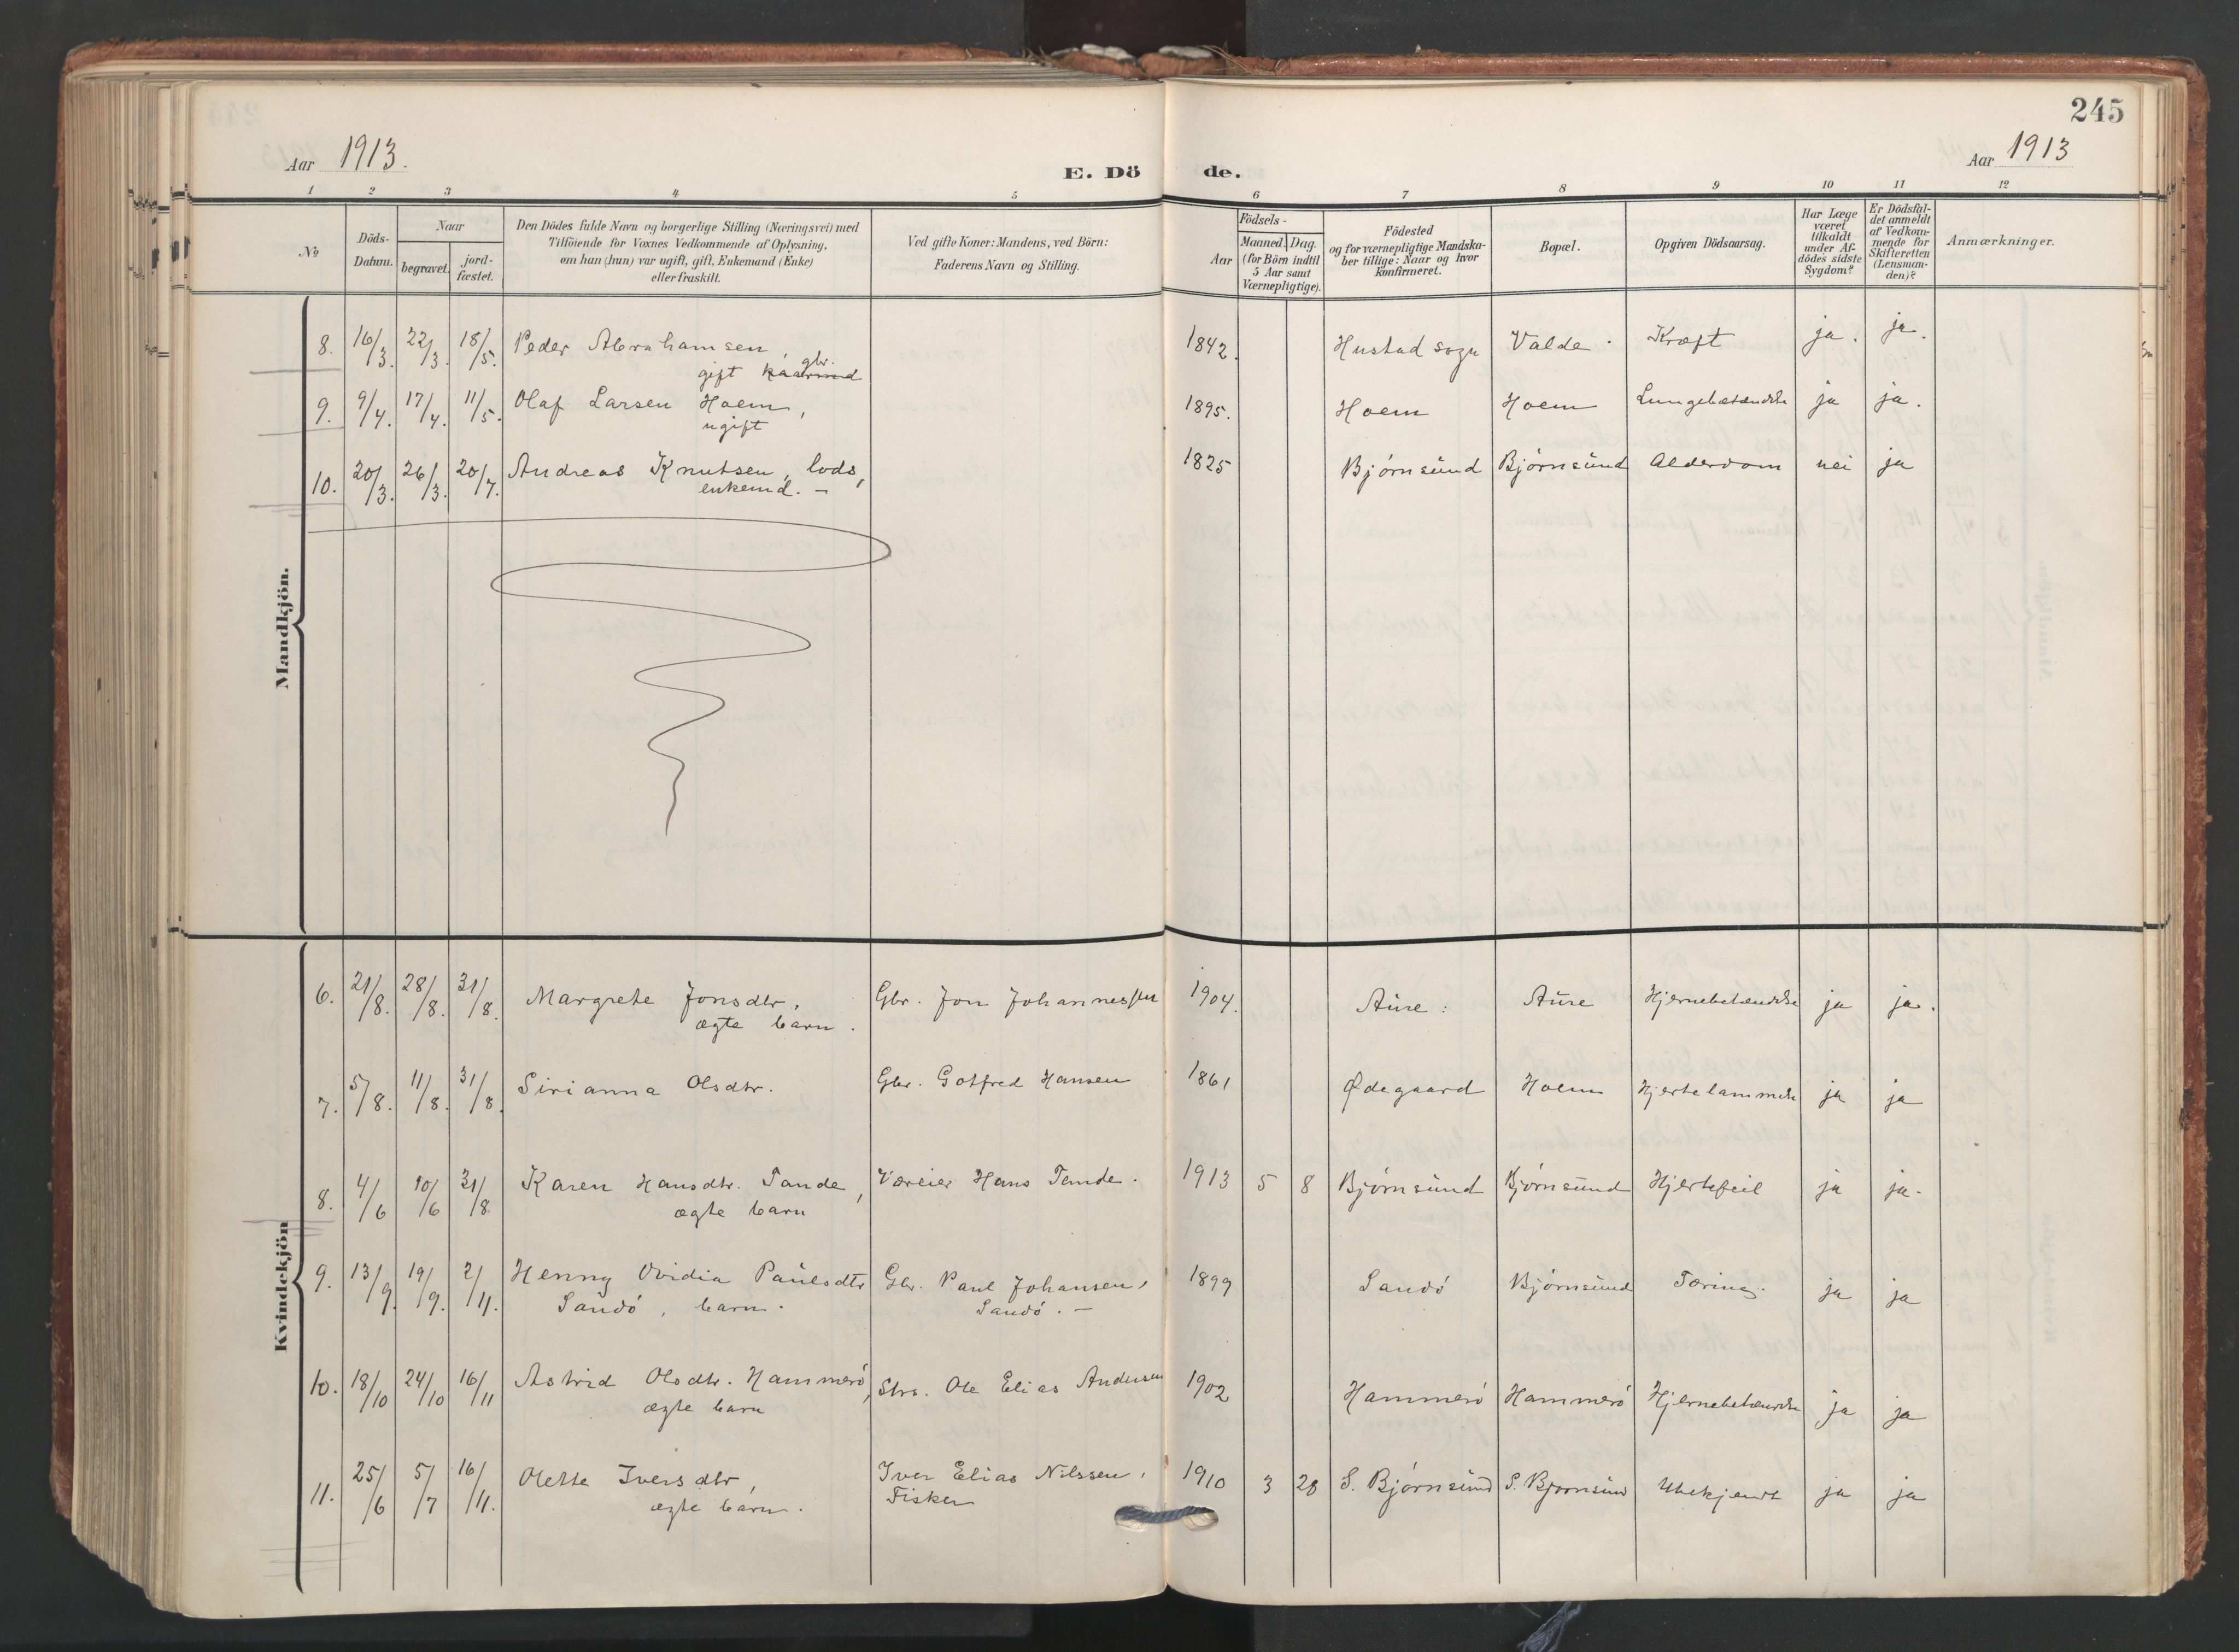 245
Aar 1913.
E. Dö de.
Aar 1913
1 2 3 4 5 6 7 8 9 10 11 12
No
Döds-
Datum.
Naar
begravet.
jord-
fæstet.
Den Dödes fulde Navn og borgerlige Stilling (Næringsvei) med
Tilföiende for Voxnes Vedkommende af Oplysning,
om han (hun) var ugift, gift, Enkemand (Enke)
eller fraskilt.
Ved gifte Koner: Mandens, ved Börn:
Faderens Navn og Stilling.
Födsels-
Aar
Maaned. Dag.
(for Börn indtil
5 Aar samt
Værnepligtige).
Födested
og for værnepligtige Mandska-
ber tillige: Naar og hvor
konfirmeret.
Bopæl.
Opgiven Dödsaarsag.
Har Læge
været
tilkaldt
under Af-
dödes sidste
Sygdom?
Er Dödsfal-
det anmeldt
af Vedkom-
mende for
Skifteretten
(Lensman-
den)?
Anmærkninger.
Mandkjön.
8. 16/3. 22/3. 18/5. Peder Abrahamsen, 1842. Hustad sogn Valde Kræft ja. ja.
gbr.
gift kaarmd
9. 9/4. 17/4. 11/5. Olaf Larsen Hoem, 1895. Hoem Hoem Lungebetændelse ja ja.
ugift
10. 20/3. 26/3. 20/7. Andreas Knutsen, lods, 1825 Bjørnsund Bjørnsund Alderdom nei ja
enkemd. –
Kvindekjön
6. 21/8. 28/8. 31/8. Margrete Jonsdtr, Gbr. Jon Johannessen 1904. Aure. Aure Hjernebetændelse ja ja.
ægte barn.
7. 5/8. 11/8. 31/8. Sirianna Olsdtr. Gbr. Gotfred Hansen 1861 Ødegaard Hoem Hjertelammelse ja ja
8. 4/6 10/6 31/8. Karen Hansdtr. Tande, Væreier Hans Tande. 1913 5 8 Bjørnsund Bjørnsund Hjertefeil ja ja.
ægte barn
9. 13/9. 19/9. 2/11. Henny Ovidia Paulsdtr Gbr. Paul Johansen, 1899 Sandø Bjørnsund Tæring. ja ja
Sandø, barn. Sandø. –
10. 18/10 24/10 16/11 Astrid Olsdtr. Hammerø, Strs. Ole Elias Andersen 1902 Hammerø Hammerø Hjernebetændelse ja ja
ægte barn
11. 25/6 5/7 16/11. Olette Iversdtr, Iver Elias Nilssen, 1910 3 28 S. Bjørnsund S. Bjørnsund Ubekjendt ja ja
ægte barn. Fisker